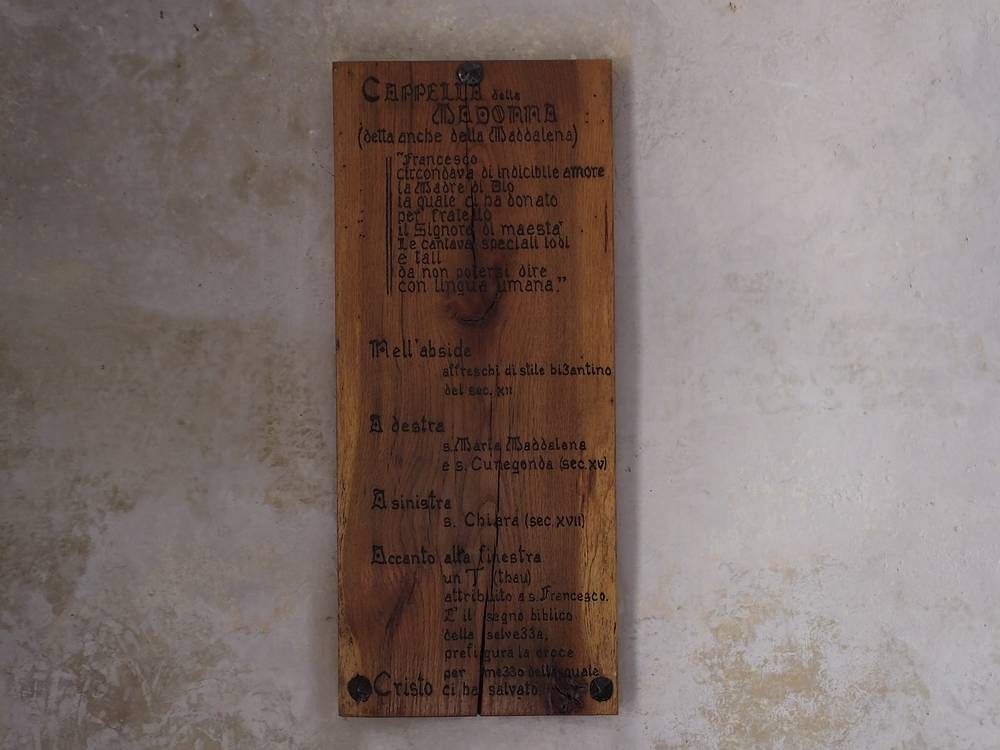 CAPPELLA della
MADONNA
(detta anche della Maddalena)
"Francesco
circondava di indicibile amore
la Madre di Dio
la quale ci ha donato
per fratello
il Signore di maestà
Le cantava speciali lodi
e tali
da non potersi dire
con lingua umana."
Nell'abside
affreschi di stile bizantino
del sec. XII
A destra
s. Maria Maddalena
e s. Cunegonda (sec. XV)
A sinistra
s. Chiara (sec. XVII)
Accanto alla finestra
un T (thau)
attribuito a s. Francesco.
E' il segno biblico
della salvezza,
prefigura la croce
per mezzo della quale
Cristo ci ha salvato.